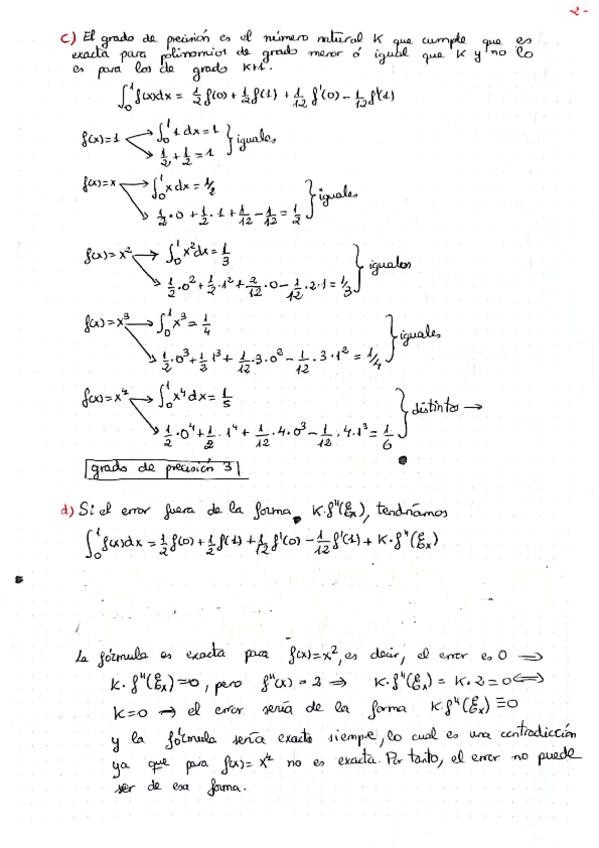 -2-
c) El grado de precisión es el número natural K que cumple que es
exacta para polinomios de grado menor ó igual que K y no lo
es para los de grado K+1.
∫₀¹ f(x)dx = 1/2 f(0) + 1/2 f(1) + 1/12 f'(0) - 1/12 f'(1)
f(x)=1 → ∫₀¹ 1 dx = 1
→ 1/2 + 1/2 = 1 } iguales
f(x)=x → ∫₀¹ x dx = 1/2
→ 1/2·0 + 1/2·1 + 1/12 - 1/12 = 1/2 } iguales
f(x)=x² → ∫₀¹ x²dx = 1/3
→ 1/2·0² + 1/2·1² + 2/12·0 - 1/12·2·1 = 1/3 } iguales
f(x)=x³ → ∫₀¹ x³ = 1/4
→ 1/2·0³ + 1/3 1³ + 1/12·3·0² - 1/12·3·1² = 1/4 } iguales
f(x)=x⁴ → ∫₀¹ x⁴dx = 1/5
→ 1/2·0⁴ + 1/2·1⁴ + 1/12·4·0³ - 1/12·4·1³ = 1/6 } distintos →
grado de precisión 3
d) Si el error fuera de la forma K·f''(ξx), tendríamos
∫₀¹ f(x)dx = 1/2 f(0) + 1/2 f(1) + 1/12 f'(0) - 1/12 f'(1) + K·f''(ξx)
La fórmula es exacta para f(x)=x², es decir, el error es 0 ⇒
K·f''(ξx)=0, pero f''(x)=2 ⇒ K·f''(ξx) = K·2=0 ⇔
K=0 → el error sería de la forma K·f''(ξx) ≡ 0
y la fórmula sería exacta siempre, lo cual es una contradicción
ya que para f(x)=x⁴ no es exacta. Por tanto, el error no puede
ser de esa forma.